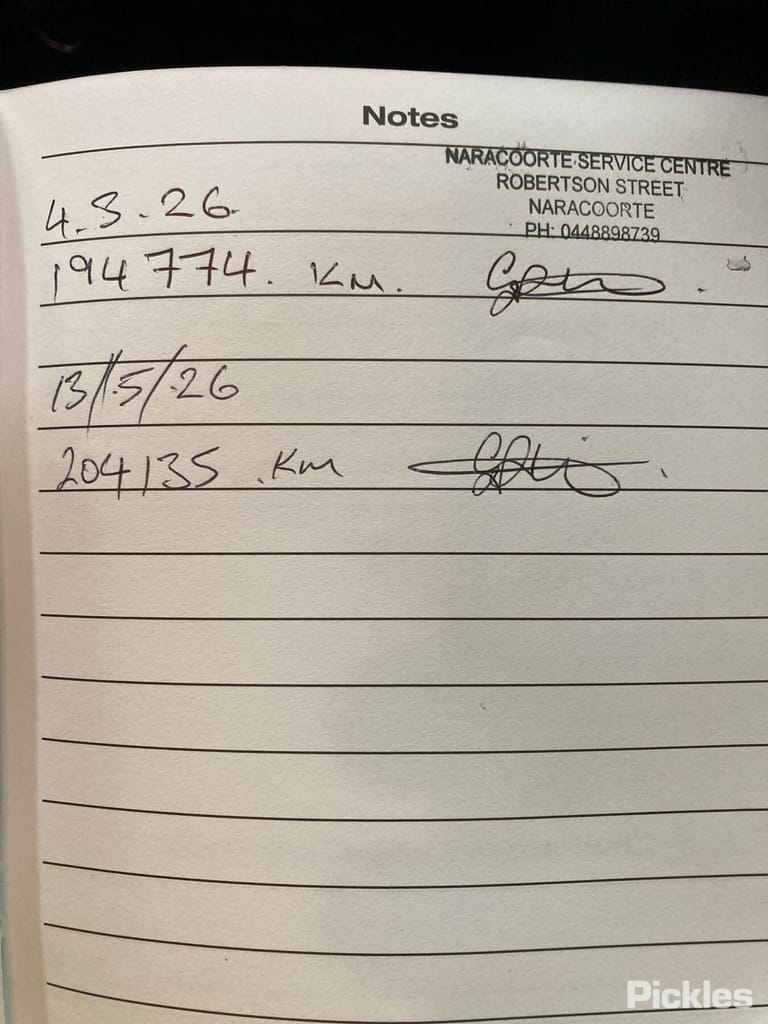 Notes
NARACOORTE SERVICE CENTRE
ROBERTSON STREET
NARACOORTE
PH: 0448898739
4.3.26
194774. KM.
13/5/26
204135 .Km
Pickles